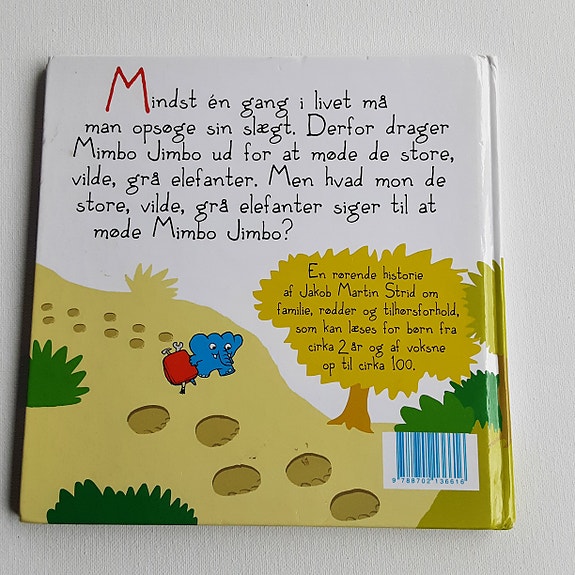 Mindst én gang i livet må
man opsøge sin slægt. Derfor drager
Mimbo Jimbo ud for at møde de store,
vilde, grå elefanter. Men hvad mon de
store, vilde, grå elefanter siger til at
møde Mimbo Jimbo?
En rørende historie
af Jakob Martin Strid om
familie, rødder og tilhørsforhold,
som kan læses for børn fra
cirka 2 år og af voksne
op til cirka 100.
9 788702 136616